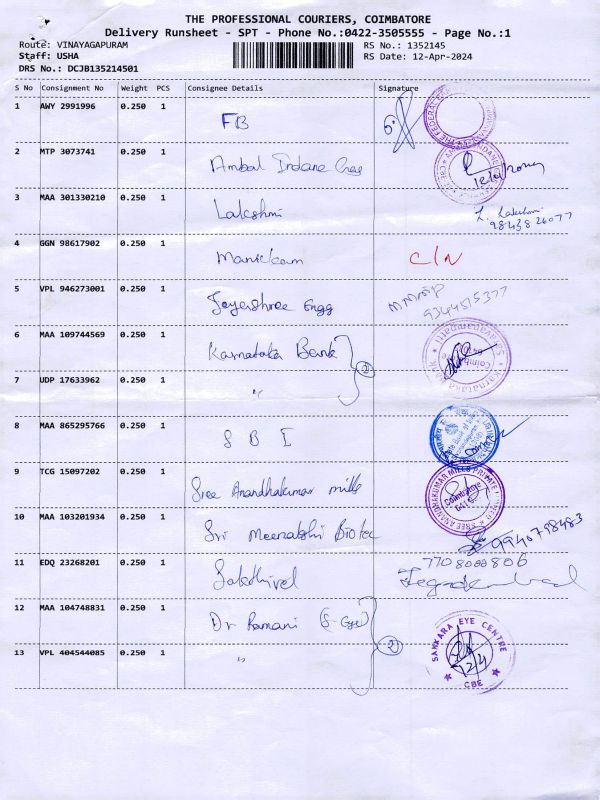 THE PROFESSIONAL COURIERS, COIMBATORE
Delivery Runsheet - SPT - Phone No.:0422-3505555 - Page No.:1
Route: VINAYAGAPURAM RS No.: 1352145
Staff: USHA RS Date: 12-Apr-2024
DRS No.: DCJB135214501
S No Consignment No Weight PCS Consignee Details Signature
1 AWY 2991996 0.250 1 FB
2 MTP 3073741 0.250 1 Ambal Indane Gas
3 MAA 301330210 0.250 1 Lakshmi L. Lakshmi
9843826077
4 GGN 98617902 0.250 1 Manickam C/N
5 VPL 946273001 0.250 1 Jeyashree Engg
9344515377
6 MAA 109744569 0.250 1 Karnataka Bank
2
7 UDP 17633962 0.250 1 "
8 MAA 865295766 0.250 1 S B I
9 TCG 15097202 0.250 1 Sree Anandhakumar mills
SREE ANANDHAKUMAR MILLS PRIVATE
Coimbatore
10 MAA 103201934 0.250 1 Sri Meenatshi Biotec 9940798483
11 EDQ 23268201 0.250 1 Sakthivel 7708000806
12 MAA 104748831 0.250 1 Dr Ramani (S-Eye)
2
13 VPL 404544085 0.250 1 "
SANKARA EYE CENTRE
12/4
CBE